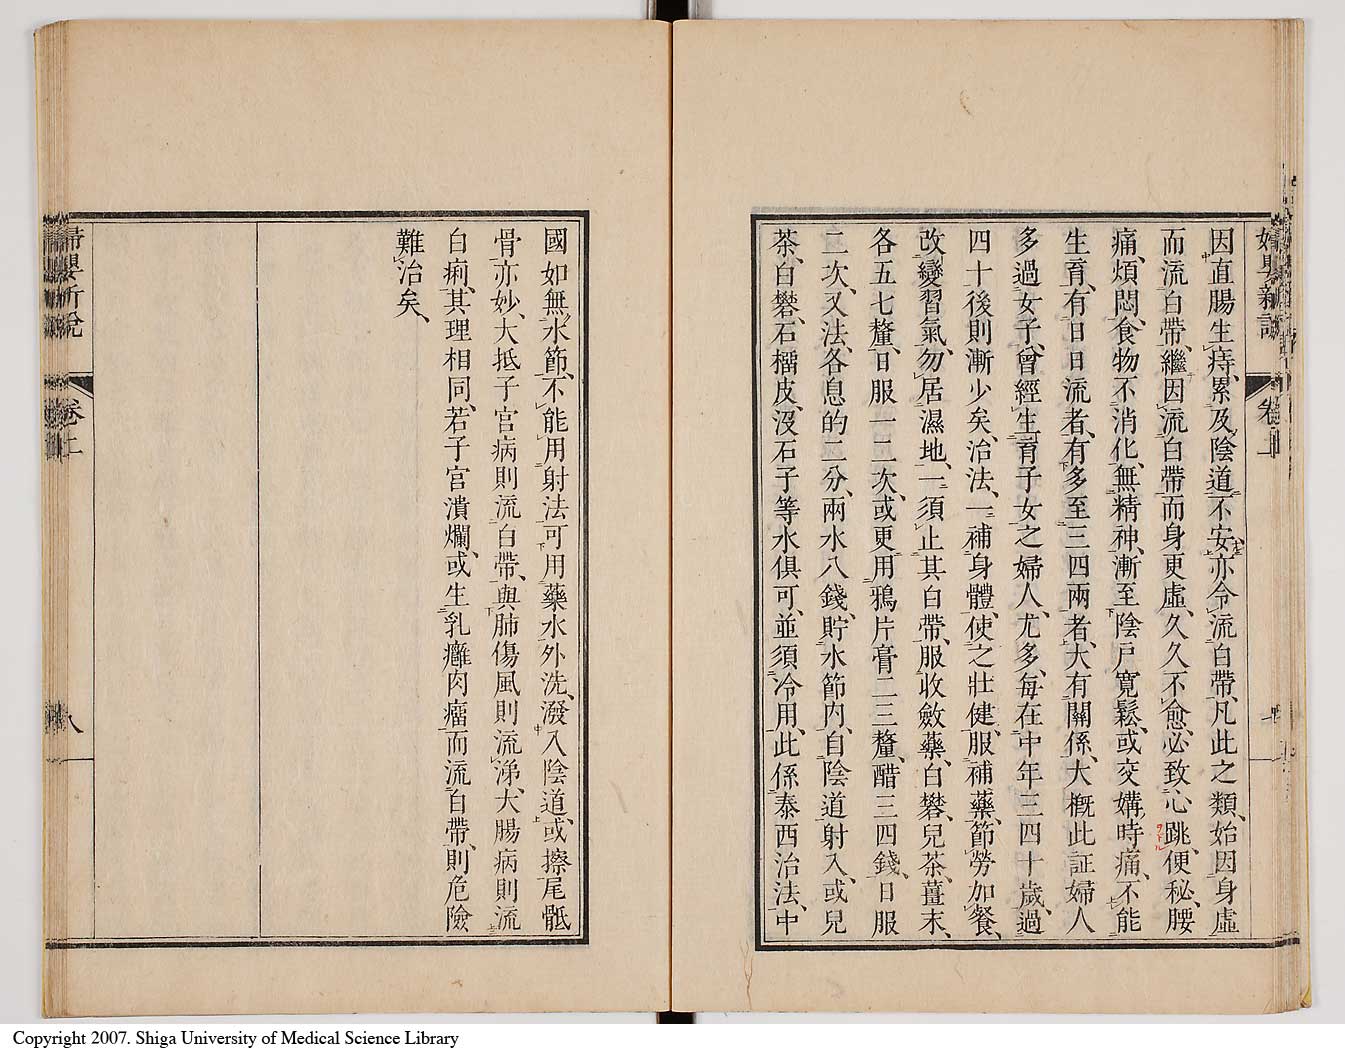 因直腸生痔、累及陰道不安、亦令流白帶、凡此之類、始因身虛
而流白帶、繼因流白帶而身更虛、久久不愈、必致心跳、便秘、腰
痛、煩悶、食物不消化、無精神、漸至陰戶寬鬆、或交媾時痛、不能
生育、有日日流者、有多至三四兩者、大有關係、大概此証婦人
多過女子、曾經生育子女之婦人、尤多、每在中年三四十歲、過
四十後則漸少矣、治法、一補身體、使之壯健、服補藥、節勞加餐、
改變習氣、勿居濕地、一須止其白帶、服收斂藥、白礬、兒茶、薑末、
各五七釐、日服一二次、或更用鴉片膏二三釐、醋三四錢、日服
二次、又法、各息的二分、兩水八錢、貯水節內、自陰道射入、或兒
茶、白礬、石榴皮、沒石子等水俱可、並須冷用、此係泰西治法、中
國如無水節、不能用射法、可用藥水外洗、潑入陰道、或擦尾骶
骨亦妙、大抵子宮病則流白帶、與肺傷風則流涕、大腸病則流
白痢、其理相同、若子宮潰爛、或生乳癰肉瘤、而流白帶、則危險
難治矣、
婦嬰新說
卷上
八
Copyright 2007. Shiga University of Medical Science Library